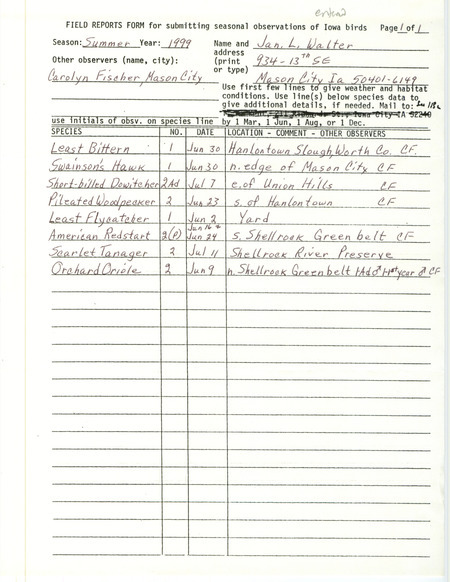 entered
FIELD REPORTS FORM for submitting seasonal observations of Iowa birds Page 1 of 1
Season: Summer Year: 1999 Name and Jan. L. Walter
address
Other observers (name, city): (print 934-13th SE
or type)
Carolyn Fischer, Mason City Mason City Ia 50401-6149
Use first few lines to give weather and habitat
conditions. Use line(s) below species data to
give additional details, if needed. Mail to:
Iowa City IA 52240
use initials of obsv. on species line by 1 Mar, 1 Jun, 1 Aug, or 1 Dec.
SPECIES NO. DATE LOCATION - COMMENT - OTHER OBSERVERS
Least Bittern 1 Jun 30 Hanlontown Slough, Worth Co. CF.
Swainson's Hawk 1 Jun 30 n. edge of Mason City CF
Short-billed Dowitcher 2 Ad Jul 7 e. of Union Hills CF
Pileated Woodpecker 2 Jun 23 s. of Hanlontown CF
Least Flycatcher 1 Jun 2 Yard
Jun 16 +
American Redstart 2(P) Jun 24 s. Shellrock Greenbelt CF
Scarlet Tanager 2 Jul 11 Shellrock River Preserve
Orchard Oriole 2 Jun 9 n. Shellrock Greenbelt 1Ad ♂ 1-1st year ♂ CF